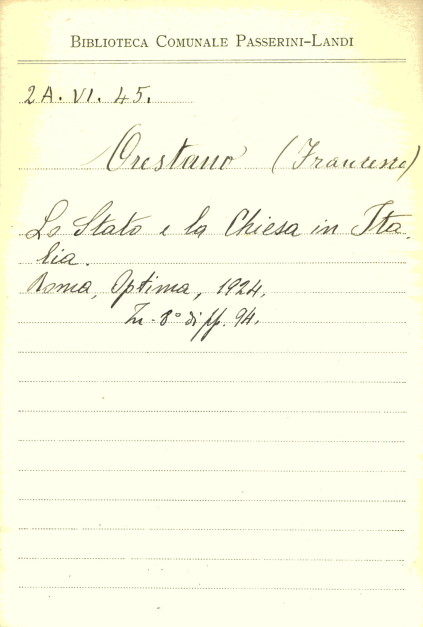 BIBLIOTECA COMUNALE PASSERINI-LANDI
2A. VI. 45.
Orestano (Francesco)
Lo Stato e la Chiesa in Ita-
lia.
Roma, Optima, 1924.
In-8° di pp. 94.